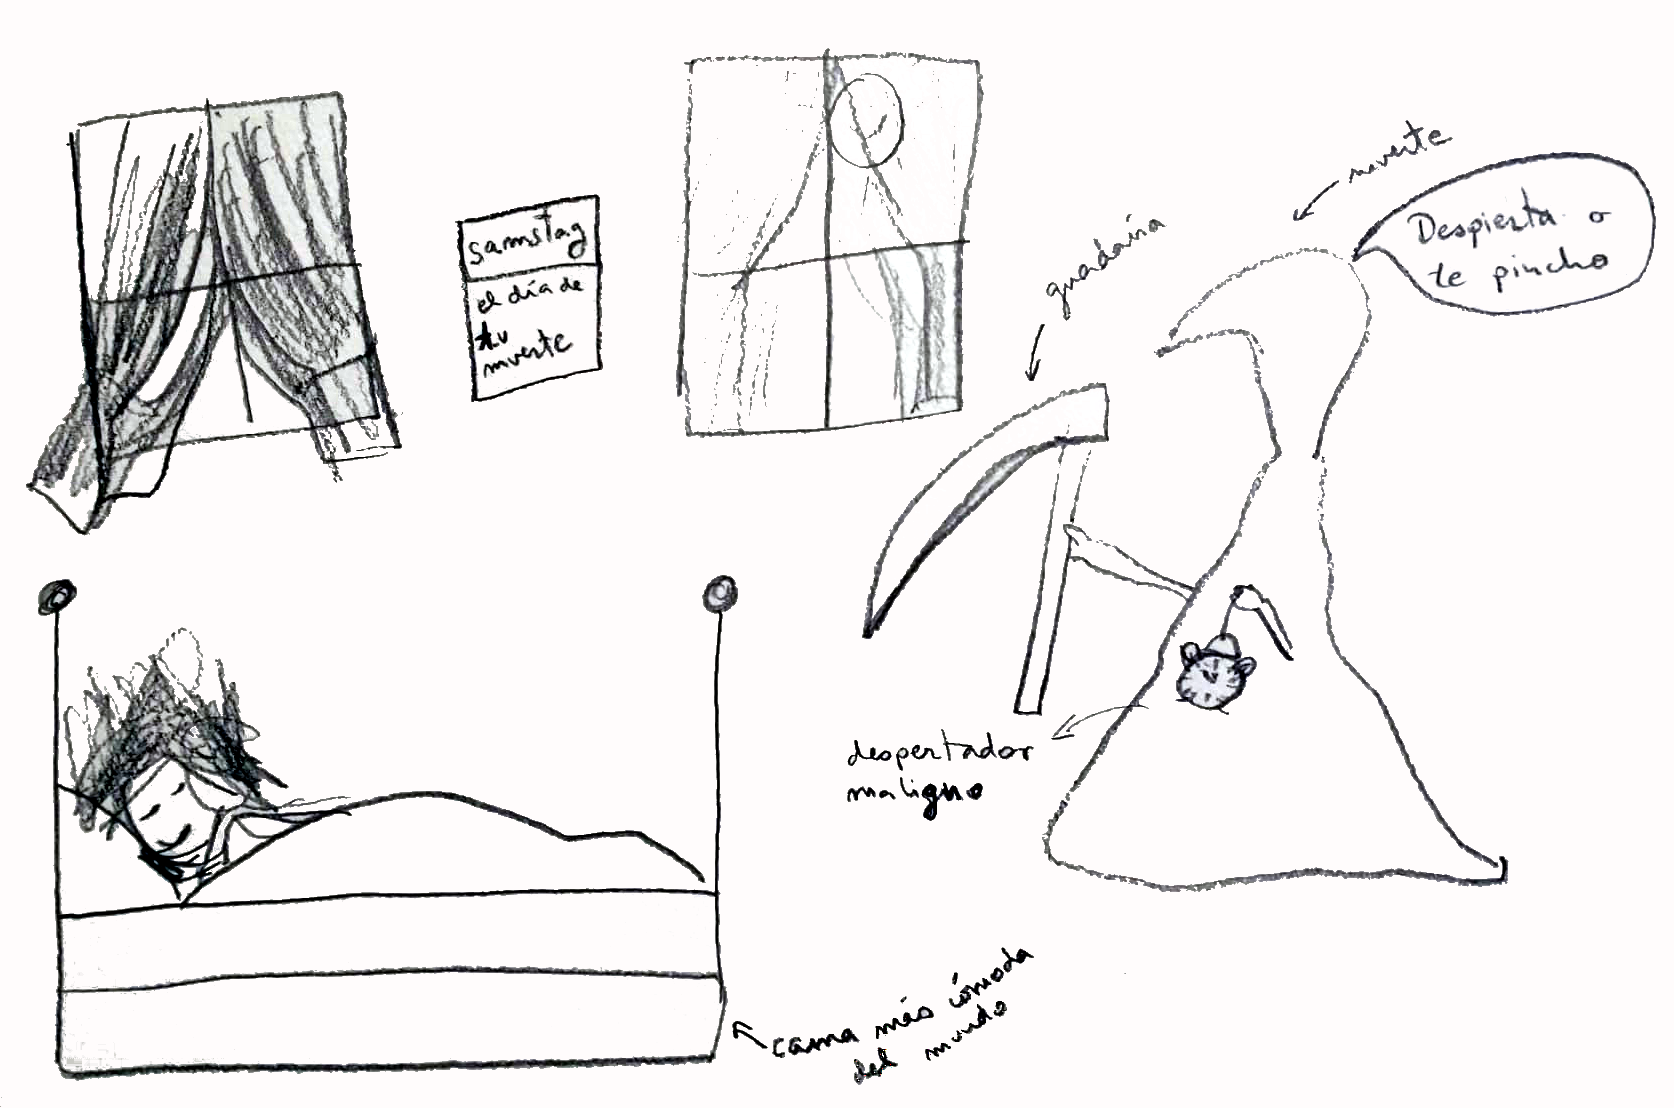 samstag
el día de
tu
muerte
muerte
Despierta o
te pincho
guadaña
despertador
maligno
cama más cómoda
del mundo